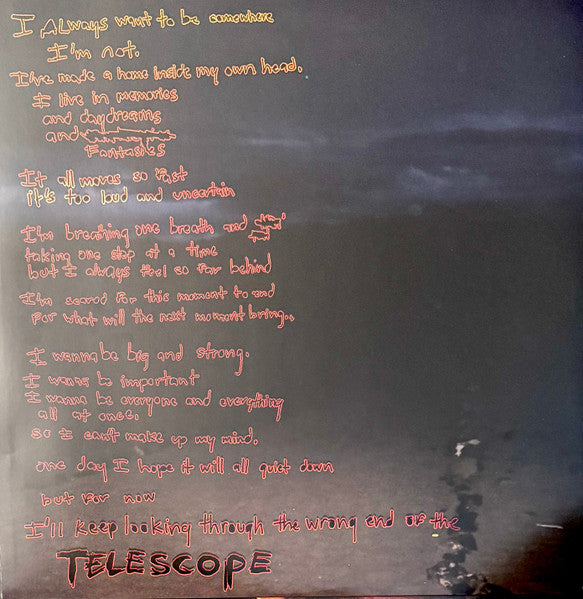 I ALways want to be somewhere
I'm not.
I've made a home inside my own head.
I live in memories
and daydreams
and
Fantasies
It all moves so fast
it's too loud and uncertain
I'm breathing one breath and
taking one step at a time
but I always feel so far behind
I'm scared for this moment to end
For what will the next moment bring..
I wanna be big and strong.
I wanna be important
I wanna be everyone and everything
all at once.
so I can't make up my mind.
one day I hope it will all quiet down
but for now
I'll keep looking through the wrong end of the
TELESCOPE